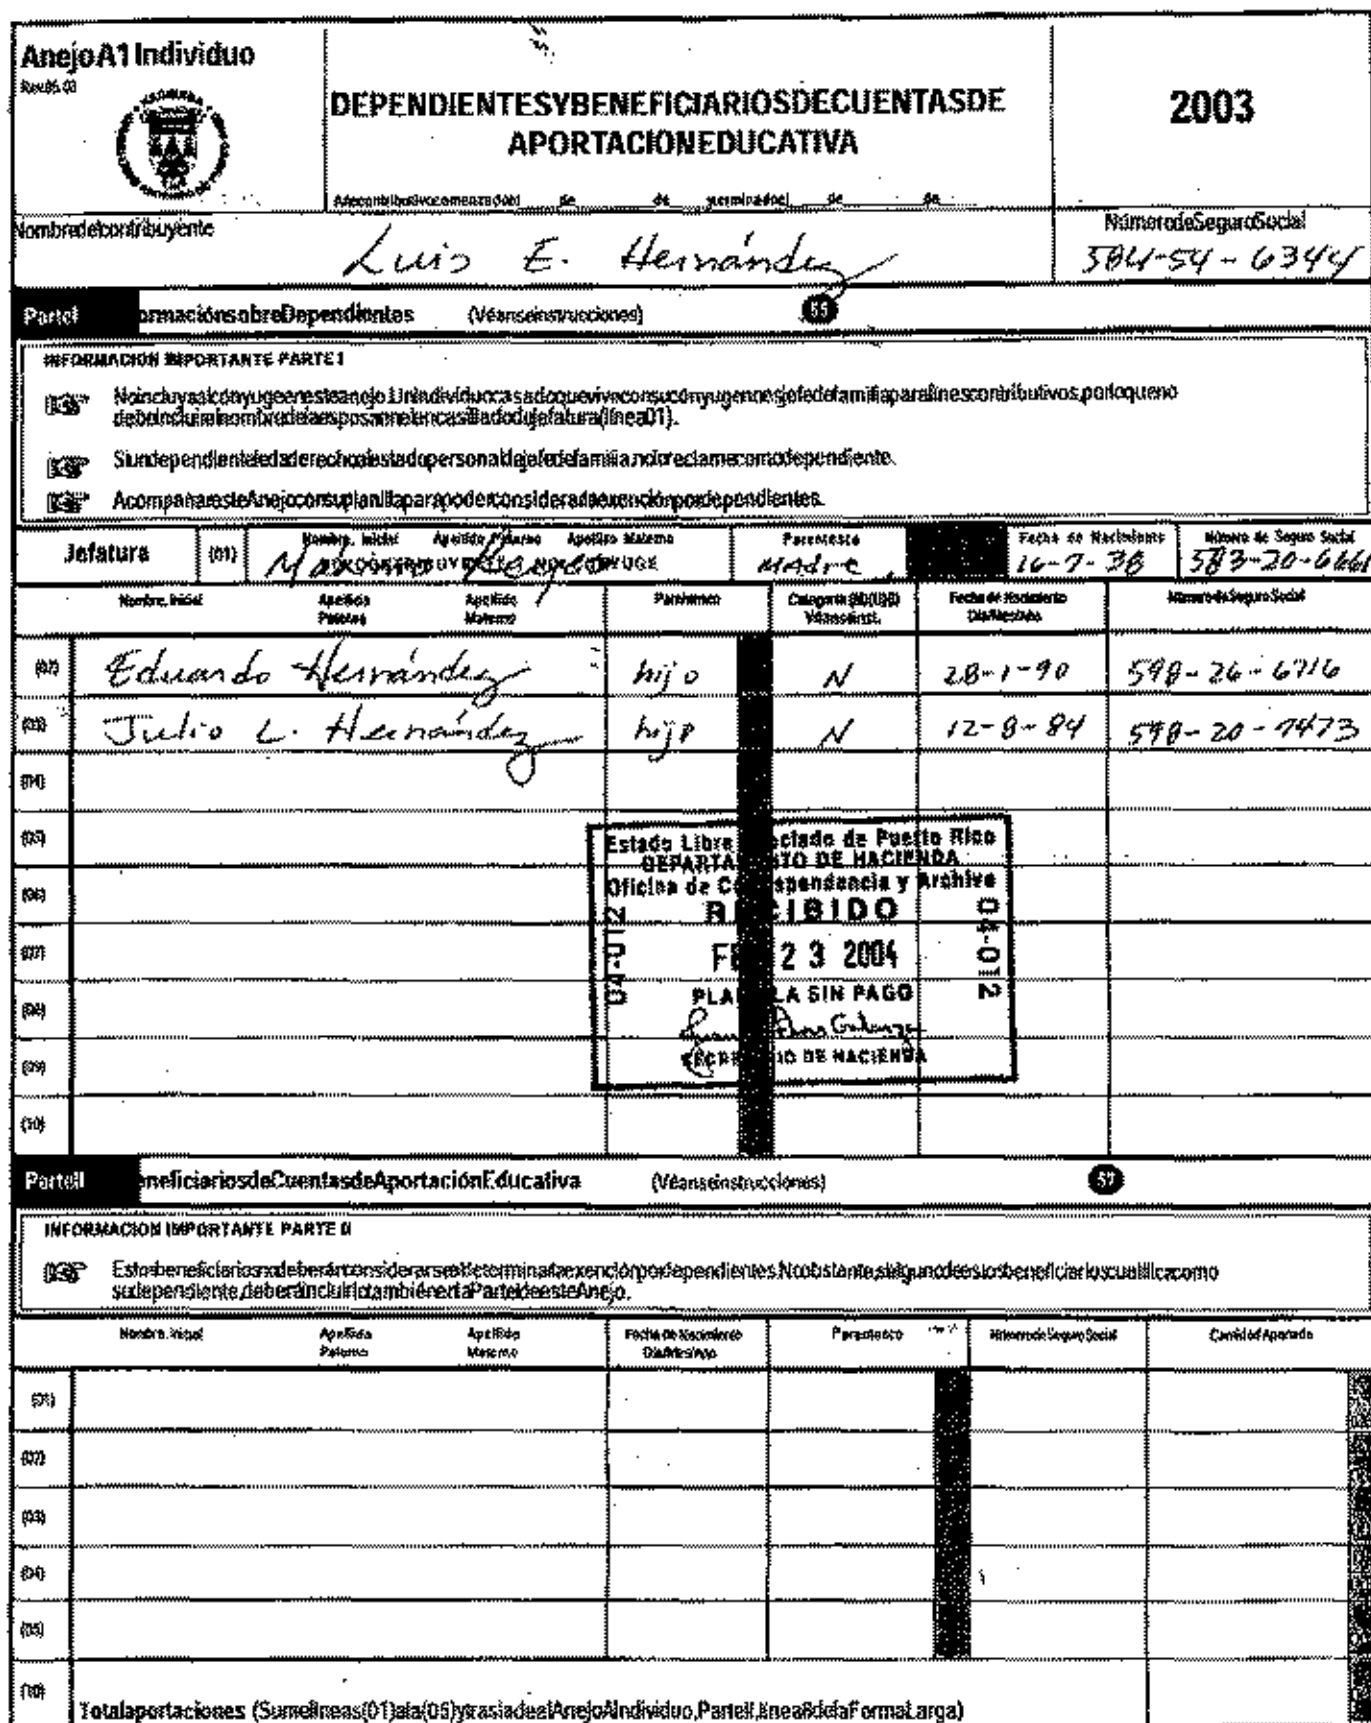 Anejo A1 Individuo
Rev. 05.03
DEPENDIENTES Y BENEFICIARIOS DE CUENTAS DE
APORTACION EDUCATIVA
2003
Año contributivo comenzado el de de y terminado el de de
Nombre del contribuyente
Número de Seguro Social
Luis E. Hernández
584-54-6344
Parte I
ormación sobre Dependientes (Véanse instrucciones)
INFORMACION IMPORTANTE PARTE I
No incluya al cónyuge en este anejo. Un individuo casado que vive con su cónyuge no es jefe de familia para fines contributivos, por lo que no
debe incluir el nombre de la esposa en el encasillado de jefatura (línea 01).
Si un dependiente le da derecho al estado personal de jefe de familia, no lo reclame como dependiente.
Acompañar este Anejo con su planilla para poder considerar la exención por dependientes.
Jefatura (01) Nombre, Inicial Apellido Paterno Apellido Materno Parentesco Fecha de Nacimiento Número de Seguro Social
Madre 16-7-38 583-20-6661
Nombre, Inicial Apellido Paterno Apellido Materno Parentesco Categoría Véanse inst. Fecha de Nacimiento Día/Mes/Año Número de Seguro Social
(02) Eduardo Hernández hijo N 28-1-90 598-26-6716
(03) Julio L. Hernández hijo N 12-8-84 598-20-7473
(04)
(05)
(06)
(07)
(08)
(09)
(10)
Estado Libre ociado de Puerto Rico
DEPARTA NTO DE HACIENDA
Oficina de Co spondencia y Archivo
R CIBIDO
04-012
FE 23 2004
04-012
PLA LA SIN PAGO
SECRE IO DE HACIENDA
Parte II
eneficiarios de Cuentas de Aportación Educativa (Véanse instrucciones)
57
INFORMACION IMPORTANTE PARTE II
Estos beneficiarios no deberán considerarse al determinar la exención por dependientes. No obstante, si alguno de estos beneficiarios cualifica como
su dependiente, deberá incluirlo también en la Parte I de este Anejo.
Nombre, Inicial Apellido Paterno Apellido Materno Fecha de Nacimiento Día/Mes/Año Parentesco Número de Seguro Social Cantidad Aportada
(01)
(02)
(03)
(04)
(05)
(10)
Total aportaciones (Sume líneas (01) a la (05) y traslade al Anejo A Individuo, Parte II, línea 8 de la Forma Larga)